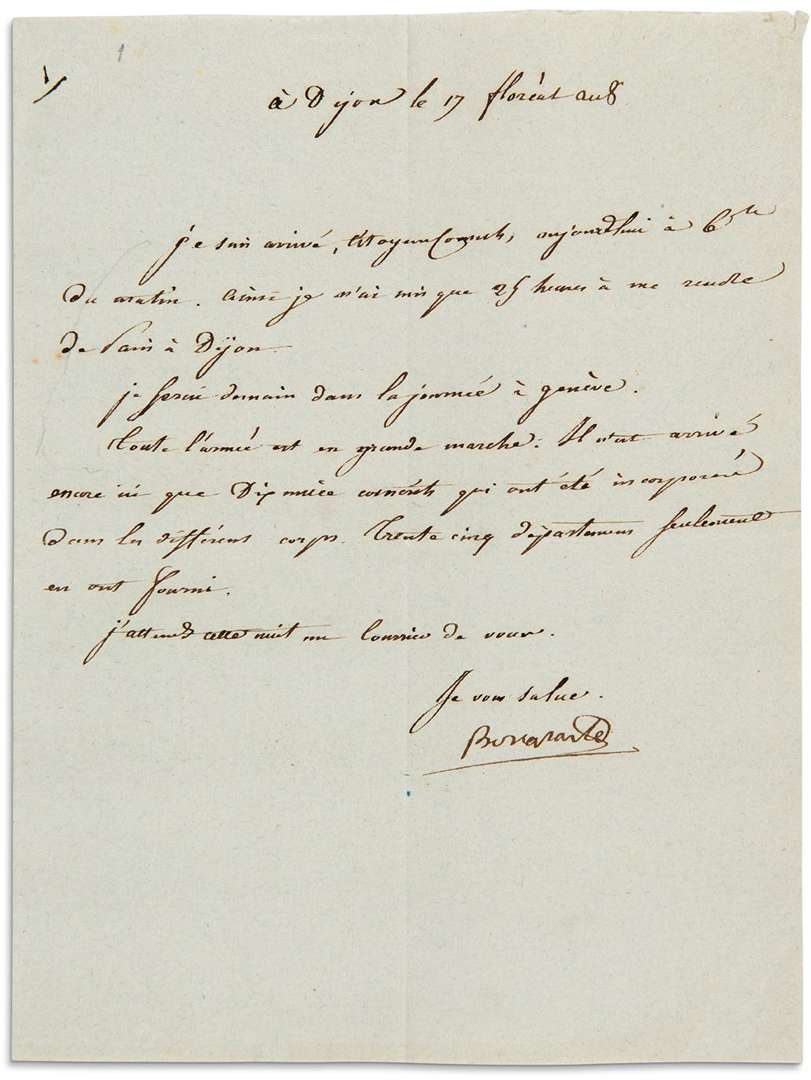 1
à Dijon le 17 floréal an 8
je suis arrivé, Citoyen Consuls, aujourdhui à 6 h.
du matin. Ainsi je n'ai mis que 25 heures à me rendre
de Paris à Dijon.
je serai demain dans la journée à genève.
toute l'armée est en grande marche. Il n'est arrivé
encore ici que Dix mille conscrits qui ont été incorporés
dans les différens corps. Trente cinq départemens seulement
en ont fourni.
j'attends cette nuit un Courrier de vous.
Je vous salue.
Bonaparte